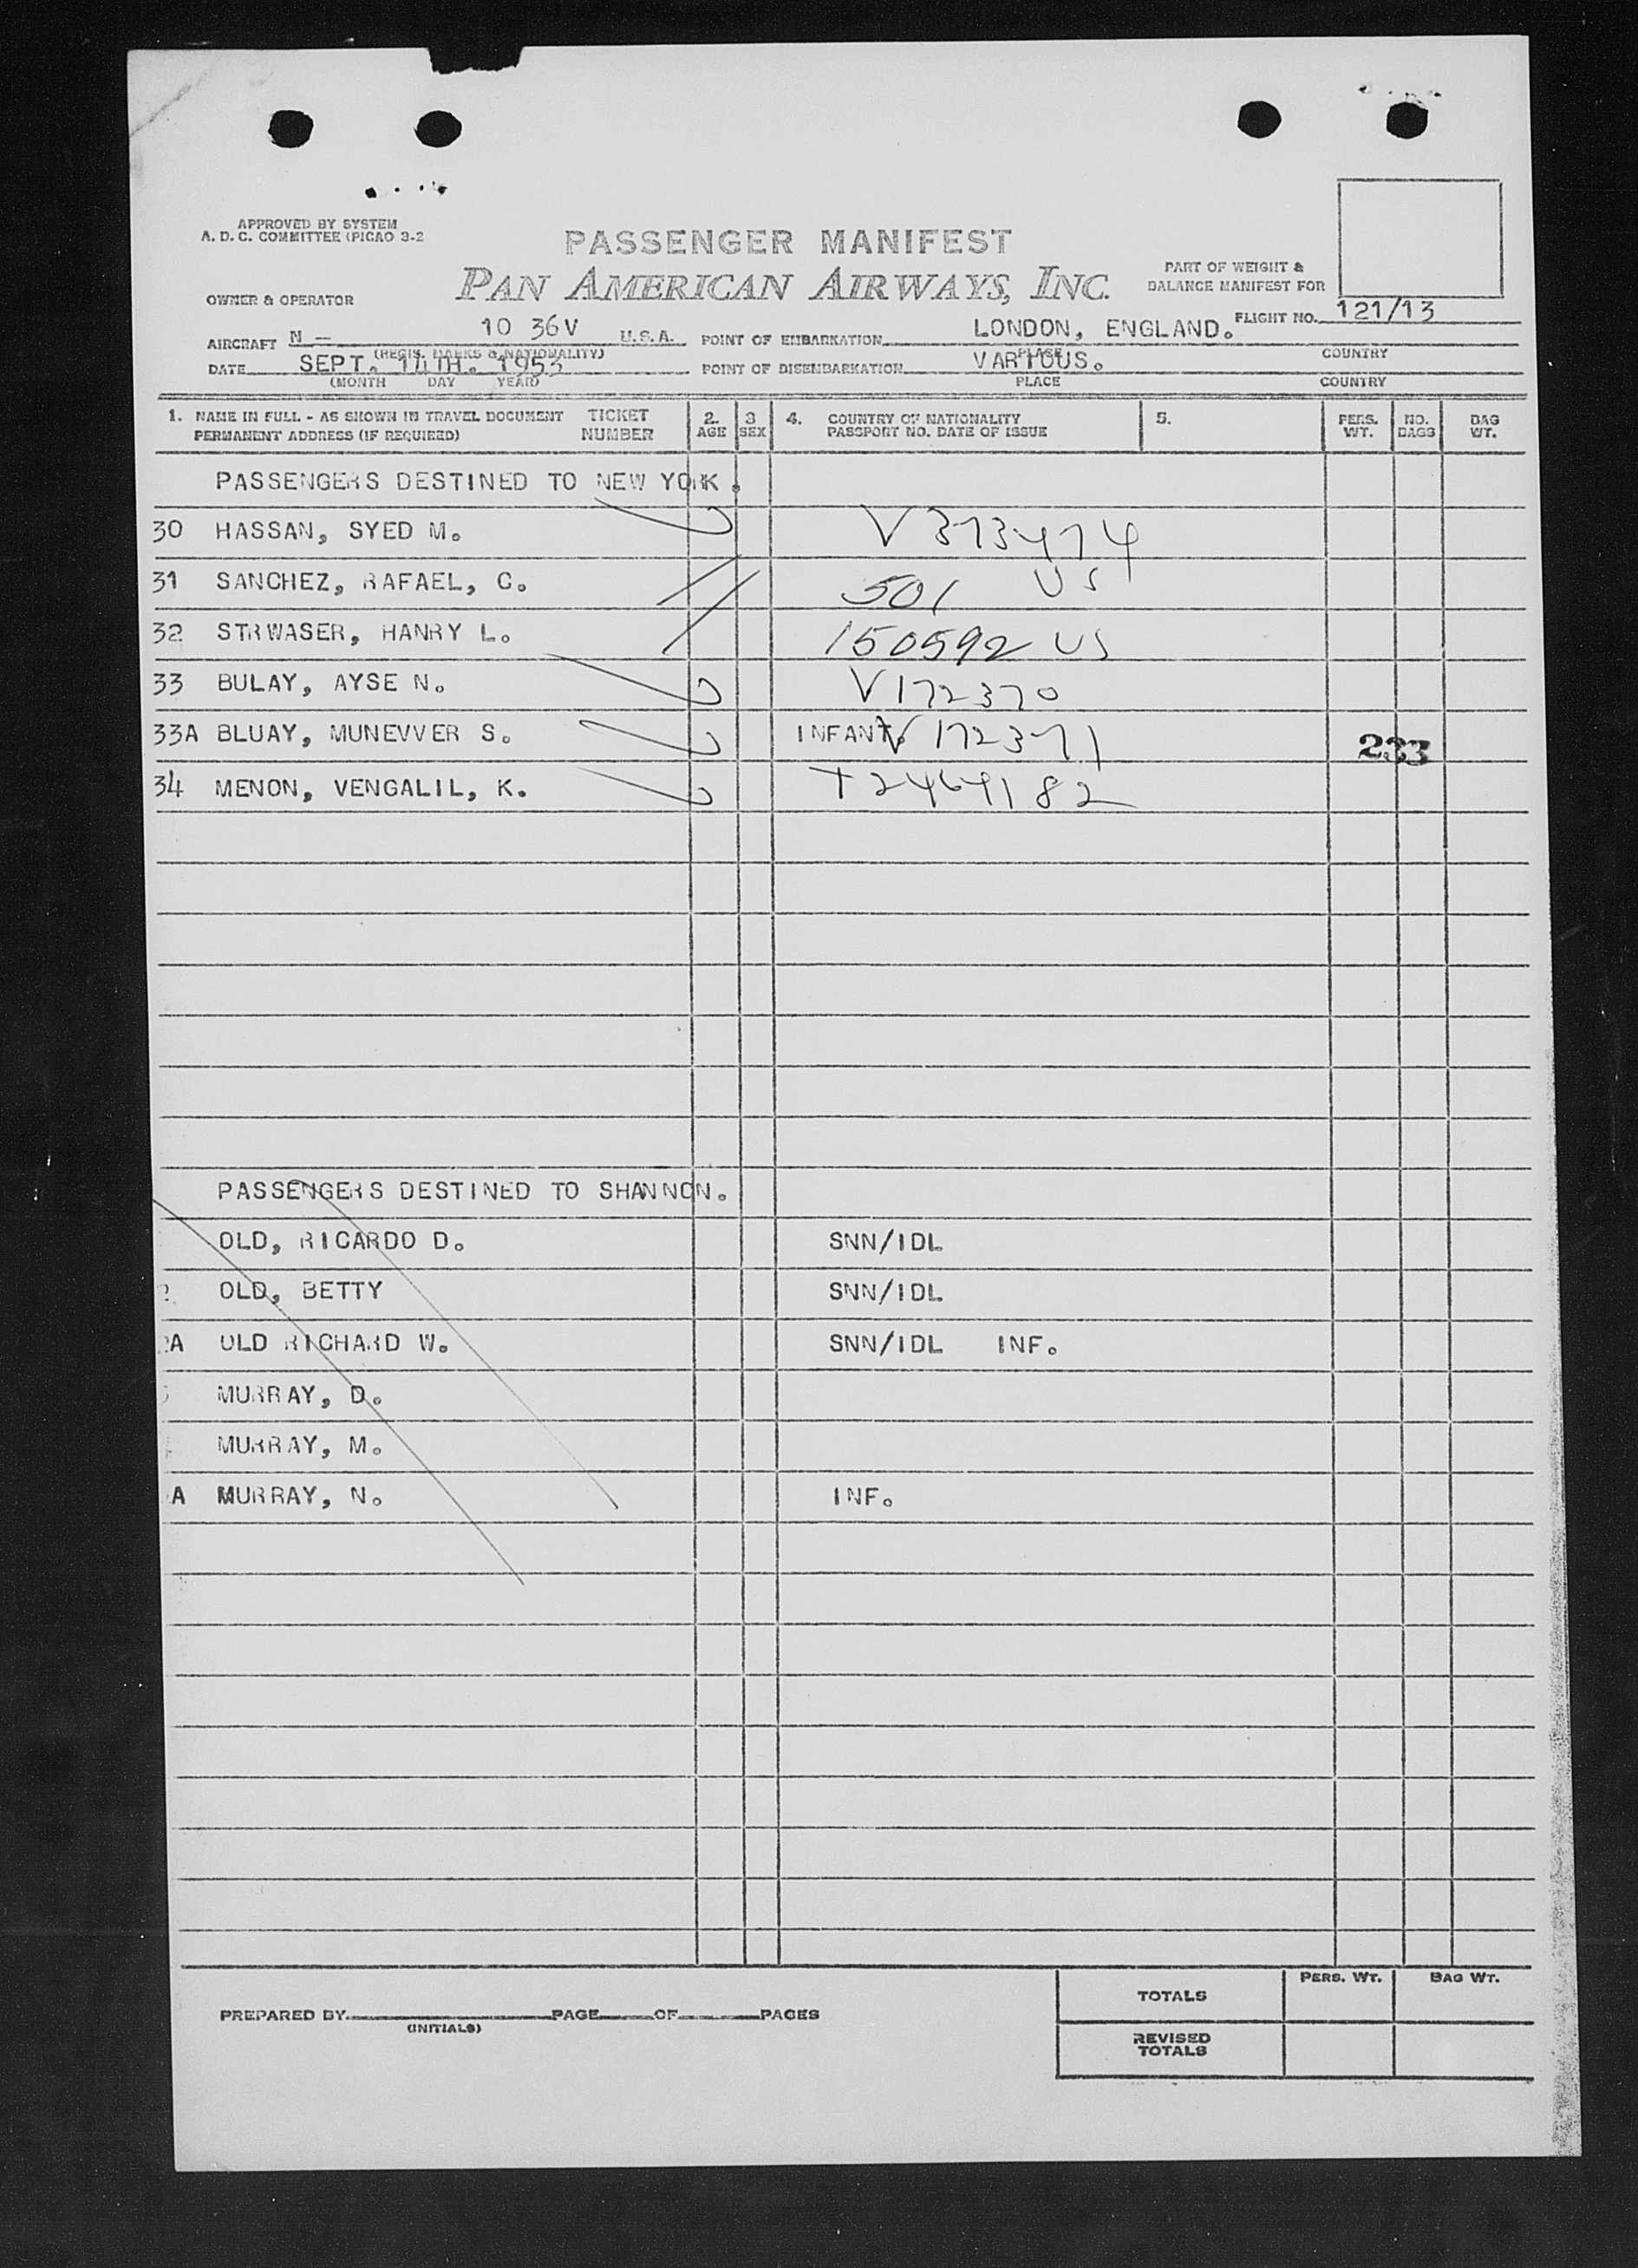 APPROVED BY SYSTEM
A. D. C. COMMITTEE (PICAO 3-2
PASSENGER MANIFEST
PAN AMERICAN AIRWAYS, INC.
PART OF WEIGHT &
BALANCE MANIFEST FOR
OWNER & OPERATOR
FLIGHT NO. 121/13
AIRCRAFT N - 10 36V U.S.A. POINT OF EMBARKATION LONDON, ENGLAND.
(REGIS. MARKS & NATIONALITY) PLACE COUNTRY
DATE SEPT. 14TH. 1953 POINT OF DISEMBARKATION VARIOUS.
(MONTH DAY YEAR) PLACE COUNTRY
1. NAME IN FULL - AS SHOWN IN TRAVEL DOCUMENT TICKET 2. 3 4. COUNTRY OF NATIONALITY 5. PERS. NO. BAG
PERMANENT ADDRESS (IF REQUIRED) NUMBER AGE SEX PASSPORT NO. DATE OF ISSUE WT. BAGS WT.
PASSENGERS DESTINED TO NEW YORK.
30 HASSAN, SYED M. V 373474
31 SANCHEZ, RAFAEL, C. 501 US
32 STRWASER, HANRY L. 150592 US
33 BULAY, AYSE N. V172370
33A BLUAY, MUNEVVER S. INFANT. V 172371 233
34 MENON, VENGALIL, K.
PASSENGERS DESTINED TO SHANNON.
OLD, RICARDO D. SNN/IDL
OLD, BETTY SNN/IDL
A OLD RICHARD W. SNN/IDL INF.
MURRAY, D.
MURRAY, M.
A MURRAY, N. INF.
PERS. WT. BAG WT.
TOTALS
PREPARED BY PAGE OF PAGES
(INITIALS)
REVISED
TOTALS